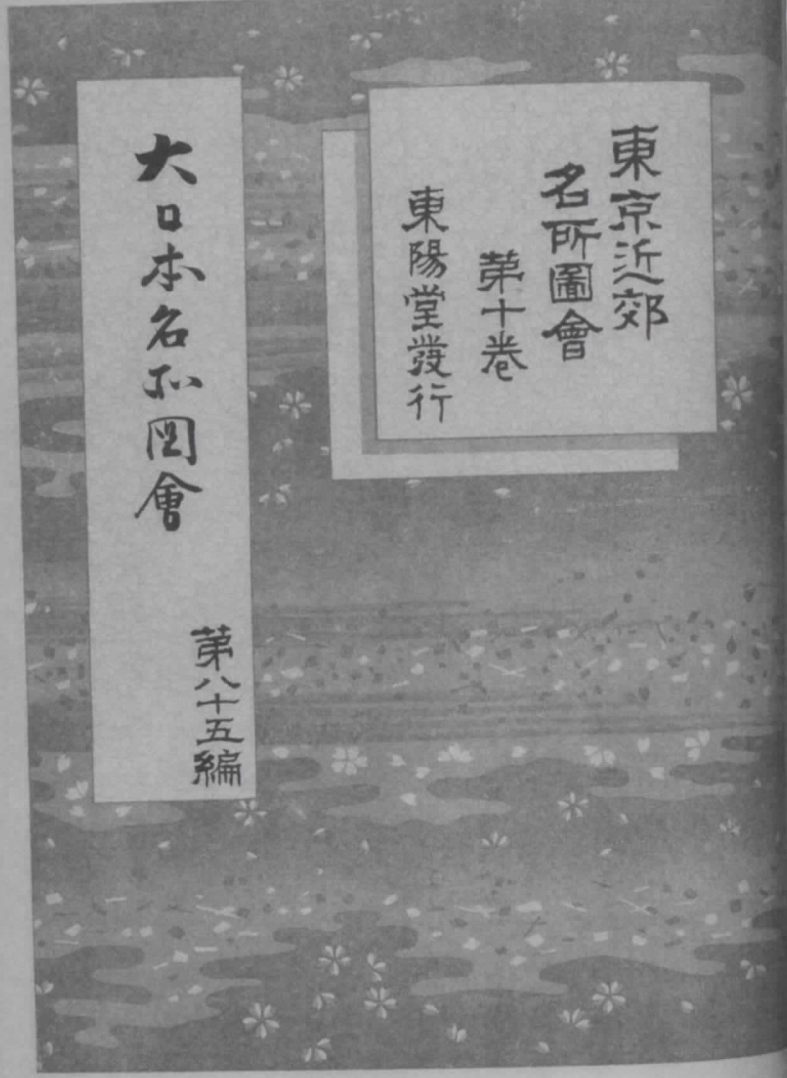 東京近郊
名所圖會
第十卷
東陽堂發行
大日本名所図會
第八十五編